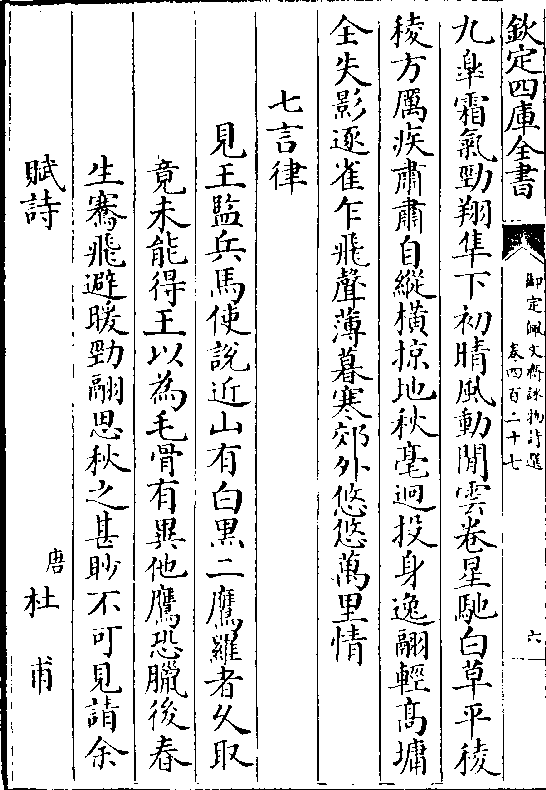 欽定四庫全書
御定佩文齋詠物詩選
卷四百二十七
六
九臯霜氣勁翔隼下初晴風動閒雲卷星馳白草平稜
稜方厲疾肅肅自縱橫掠地秋毫迥投身逸翮輕髙墉
全失影逐雀乍飛聲薄暮寒郊外悠悠萬里情
七言律
見王監兵馬使說近山有白黒二鷹羅者乆取
竟未能得王以為毛骨有異他鷹恐臘後春
生騫飛避暖勁翮思秋之甚眇不可見請余
賦詩
唐 杜甫